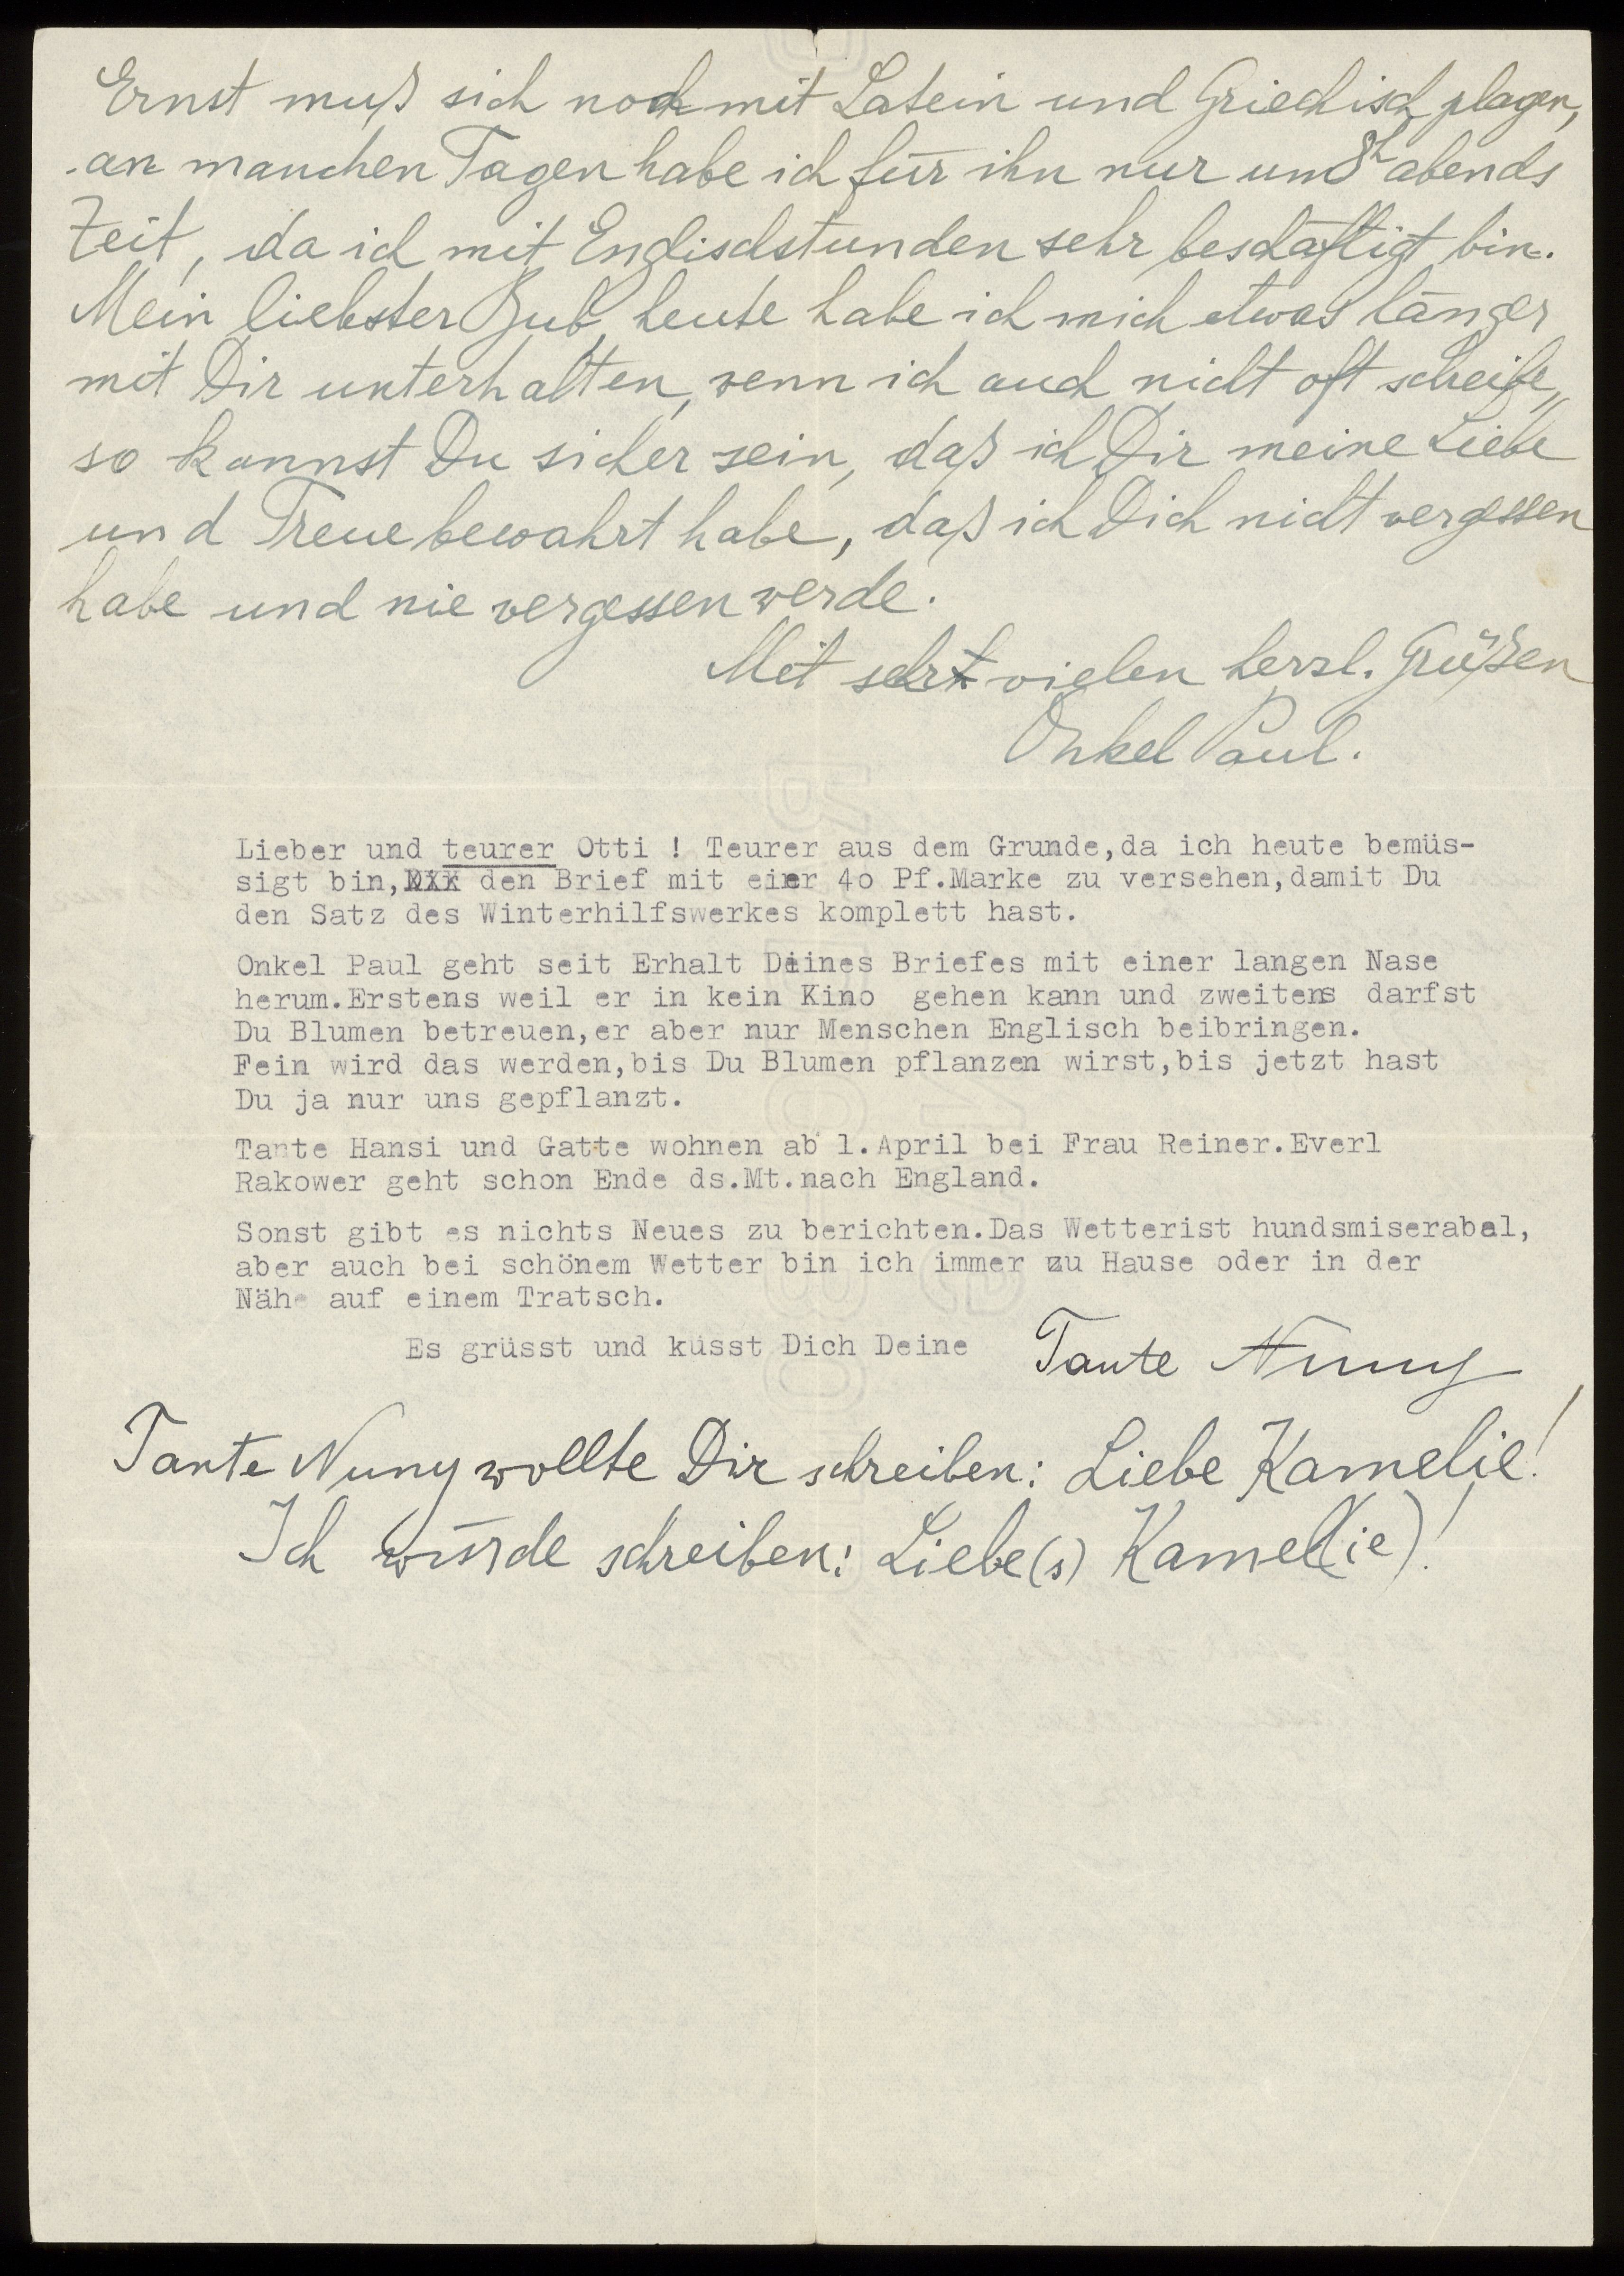 Ernst muß sich noch mit Latein und Griechisch plagen,
an manchen Tagen habe ich für ihn nur um 8h abends
Zeit, da ich mit Englischstunden sehr beschäftigt bin.
Mein liebster Bub, heute habe ich mich etwas länger
mit Dir unterhalten, wenn ich auch nicht oft schreibe,
so kannst Du sicher sein, daß ich Dir meine Liebe
und Treue bewahrt habe, daß ich Dich nicht vergessen
habe und nie vergessen werde.
Mit sehr vielen herzl. Grüßen
Onkel Paul.
Lieber und teurer Otti ! Teurer aus dem Grunde,da ich heute bemüs-
sigt bin, den Brief mit einer 4o Pf.Marke zu versehen,damit Du
den Satz des Winterhilfswerkes komplett hast.
Onkel Paul geht seit Erhalt Deines Briefes mit einer langen Nase
herum.Erstens weil er in kein Kino gehen kann und zweitens darfst
Du Blumen betreuen,er aber nur Menschen Englisch beibringen.
Fein wird das werden,bis Du Blumen pflanzen wirst,bis jetzt hast
Du ja nur uns gepflanzt.
Tante Hansi und Gatte wohnen ab 1.April bei Frau Reiner.Everl
Rakower geht schon Ende ds.Mt.nach England.
Sonst gibt es nichts Neues zu berichten.Das Wetterist hundsmiserabel,
aber auch bei schönem Wetter bin ich immer zu Hause oder in der
Nähe auf einem Tratsch.
Es grüsst und küsst Dich Deine Tante Nuny
Tante Nuny wollte Dir schreiben: Liebe Kamelie!
Ich würde schreiben: Liebe(s) Kamel(ie)!